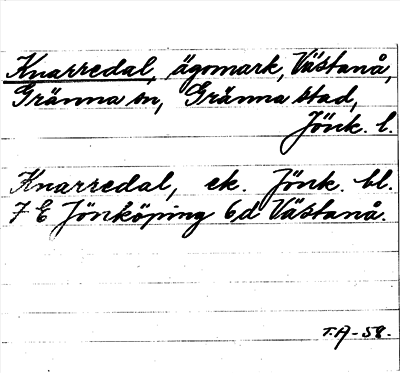 Knarredal, ägomark, Västanå,
Gränna sn, Gränna stad,
Jönk. l.
Knarredal, ek. Jönk. bl.
7 E Jönköping 6d Västanå.
T.A-58.